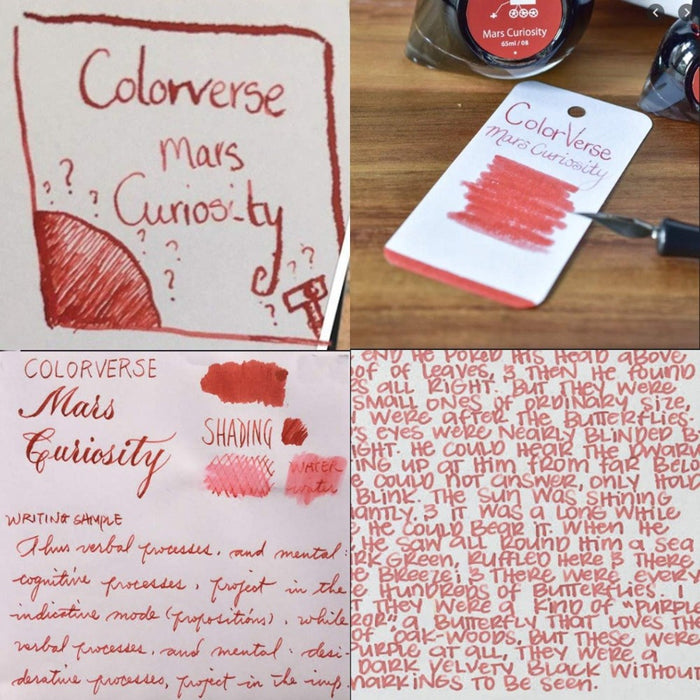 Colorverse
Mars
Curiosity
? ? ? ?
? ? ?
? ? ? ?
Mars Curiosity
65ml / 08
ColorVerse
Mars Curiosity
COLORVERSE
Mars
Curiosity
SHADING
WATER
water
WRITING SAMPLE
Thus verbal processes, and mental:
cognitive processes, project in the
indicative mode (propositions), while
verbal processes, and mental: desi-
derative processes, project in the imp.
END HE POKED HIS HEAD ABOVE
OF OF LEAVES, & THEN HE FOUND
S ALL RIGHT. BUT THEY WERE
SMALL ONES OF ORDINARY SIZE.
WERE AFTER THE BUTTERFLIES.
S EYES WERE NEARLY BLINDED B
IGHT. HE COULD HEAR THE DWARV
ING UP AT HIM FROM FAR BELO
E COULD NOT ANSWER, ONLY HOLD
BLINK. THE SUN WAS SHINING
IANTLY, & IT WAS A LONG WHILE
E HE COULD BEAR IT. WHEN HE
HE SAW ALL ROUND HIM A SEA
RK GREEN, RUFFLED HERE & THERE
E BREEZE; & THERE WERE EVERY
E HUNDREDS OF BUTTERFLIES. I
T THEY WERE A KIND OF "PURPL
ROR" A BUTTERFLY THAT LOVES THE
OF OAK-WOODS, BUT THESE WERE
PURPLE AT ALL, THEY WERE A
DARK VELVETY BLACK WITHOU
MARKINGS TO BE SEEN.